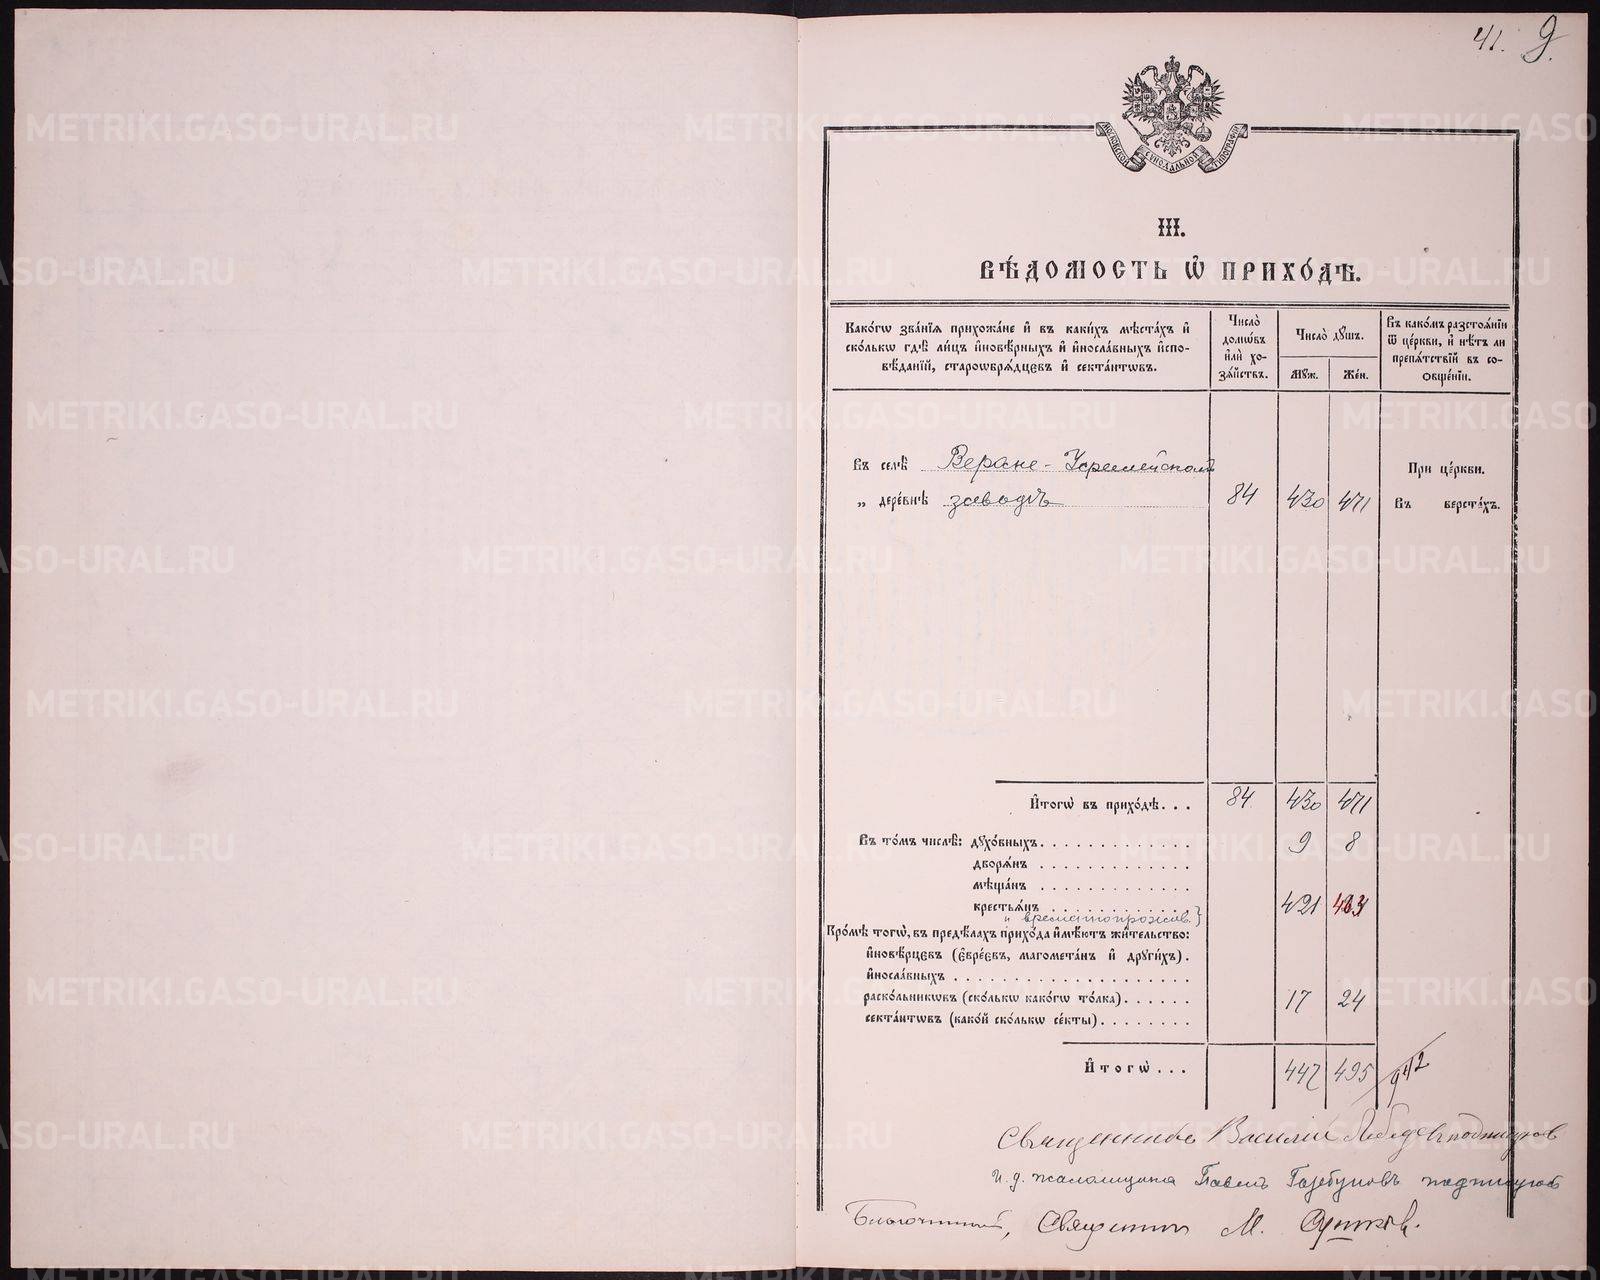 41. 9.
МОСКОВСКОЙ СѶНОДАЛЬНОЙ ТИПОГРАФІИ
III.
ВѢ́ДОМОСТЬ Ѡ҆ ПРИХО́ДѢ.
Како́гѡ зва́нїѧ прихожа́не и҆ въ каки́хъ мѣста́хъ и҆
ско́лькѡ гдѣ̀ ли́цъ и҆новѣ́рныхъ и҆ и҆носла́вныхъ и҆спо-
вѣ́данїй, старообрѧ́дцевъ и҆ секта́нтѡвъ.
Число̀
домѡ́въ
и҆лѝ хо-
зѧ́йствъ.
Число̀ дꙋ́шъ.
Мꙋж.
Же́н.
Въ како́мъ разстоѧ́нїи
ѿ це́ркви, и҆ нѣ́тъ ли
препѧ́тствїй въ со-
ѻбще́нїи.
Въ селѣ̀ Верхне-Уфалейскомъ При це́ркви.
„ дере́внѣ заводѣ 84 430 471 Въ верста́хъ.
И҆тогѡ̀ въ прихо́дѣ. . . 84 430 471
Въ то́мъ числѣ̀: дꙋхо́вныхъ . . . . . . . . . . . . . 9 8
дворѧ́нъ . . . . . . . . . . . . .
мѣща́нъ . . . . . . . . . . . . .
крестьѧ́нъ . . . . . . . . . . . . 421 463
и времен. прожив. }
Кро́мѣ тогѡ̀, въ предѣ́лахъ прихо́да и҆мѣ́ютъ жи́тельство:
и҆новѣ́рцевъ (є҆вре́євъ, магомета́нъ и҆ дрꙋги́хъ) .
и҆носла́вныхъ . . . . . . . . . . . . . . . . . .
раско́льникѡвъ (ско́лькѡ како́гѡ то́лка) . . . . . . 17 24
секта́нтѡвъ (како́й ско́лькѡ се́кты) . . . . . . . .
И҆тогѡ̀ . . . 447 495 942
Священникъ Василій Лебедевъ подписуюсь
и. д. псаломщика Павелъ Горбуновъ подписуюсь
Благочинный, Священникъ М.
METRIKI.GASO-URAL.RU